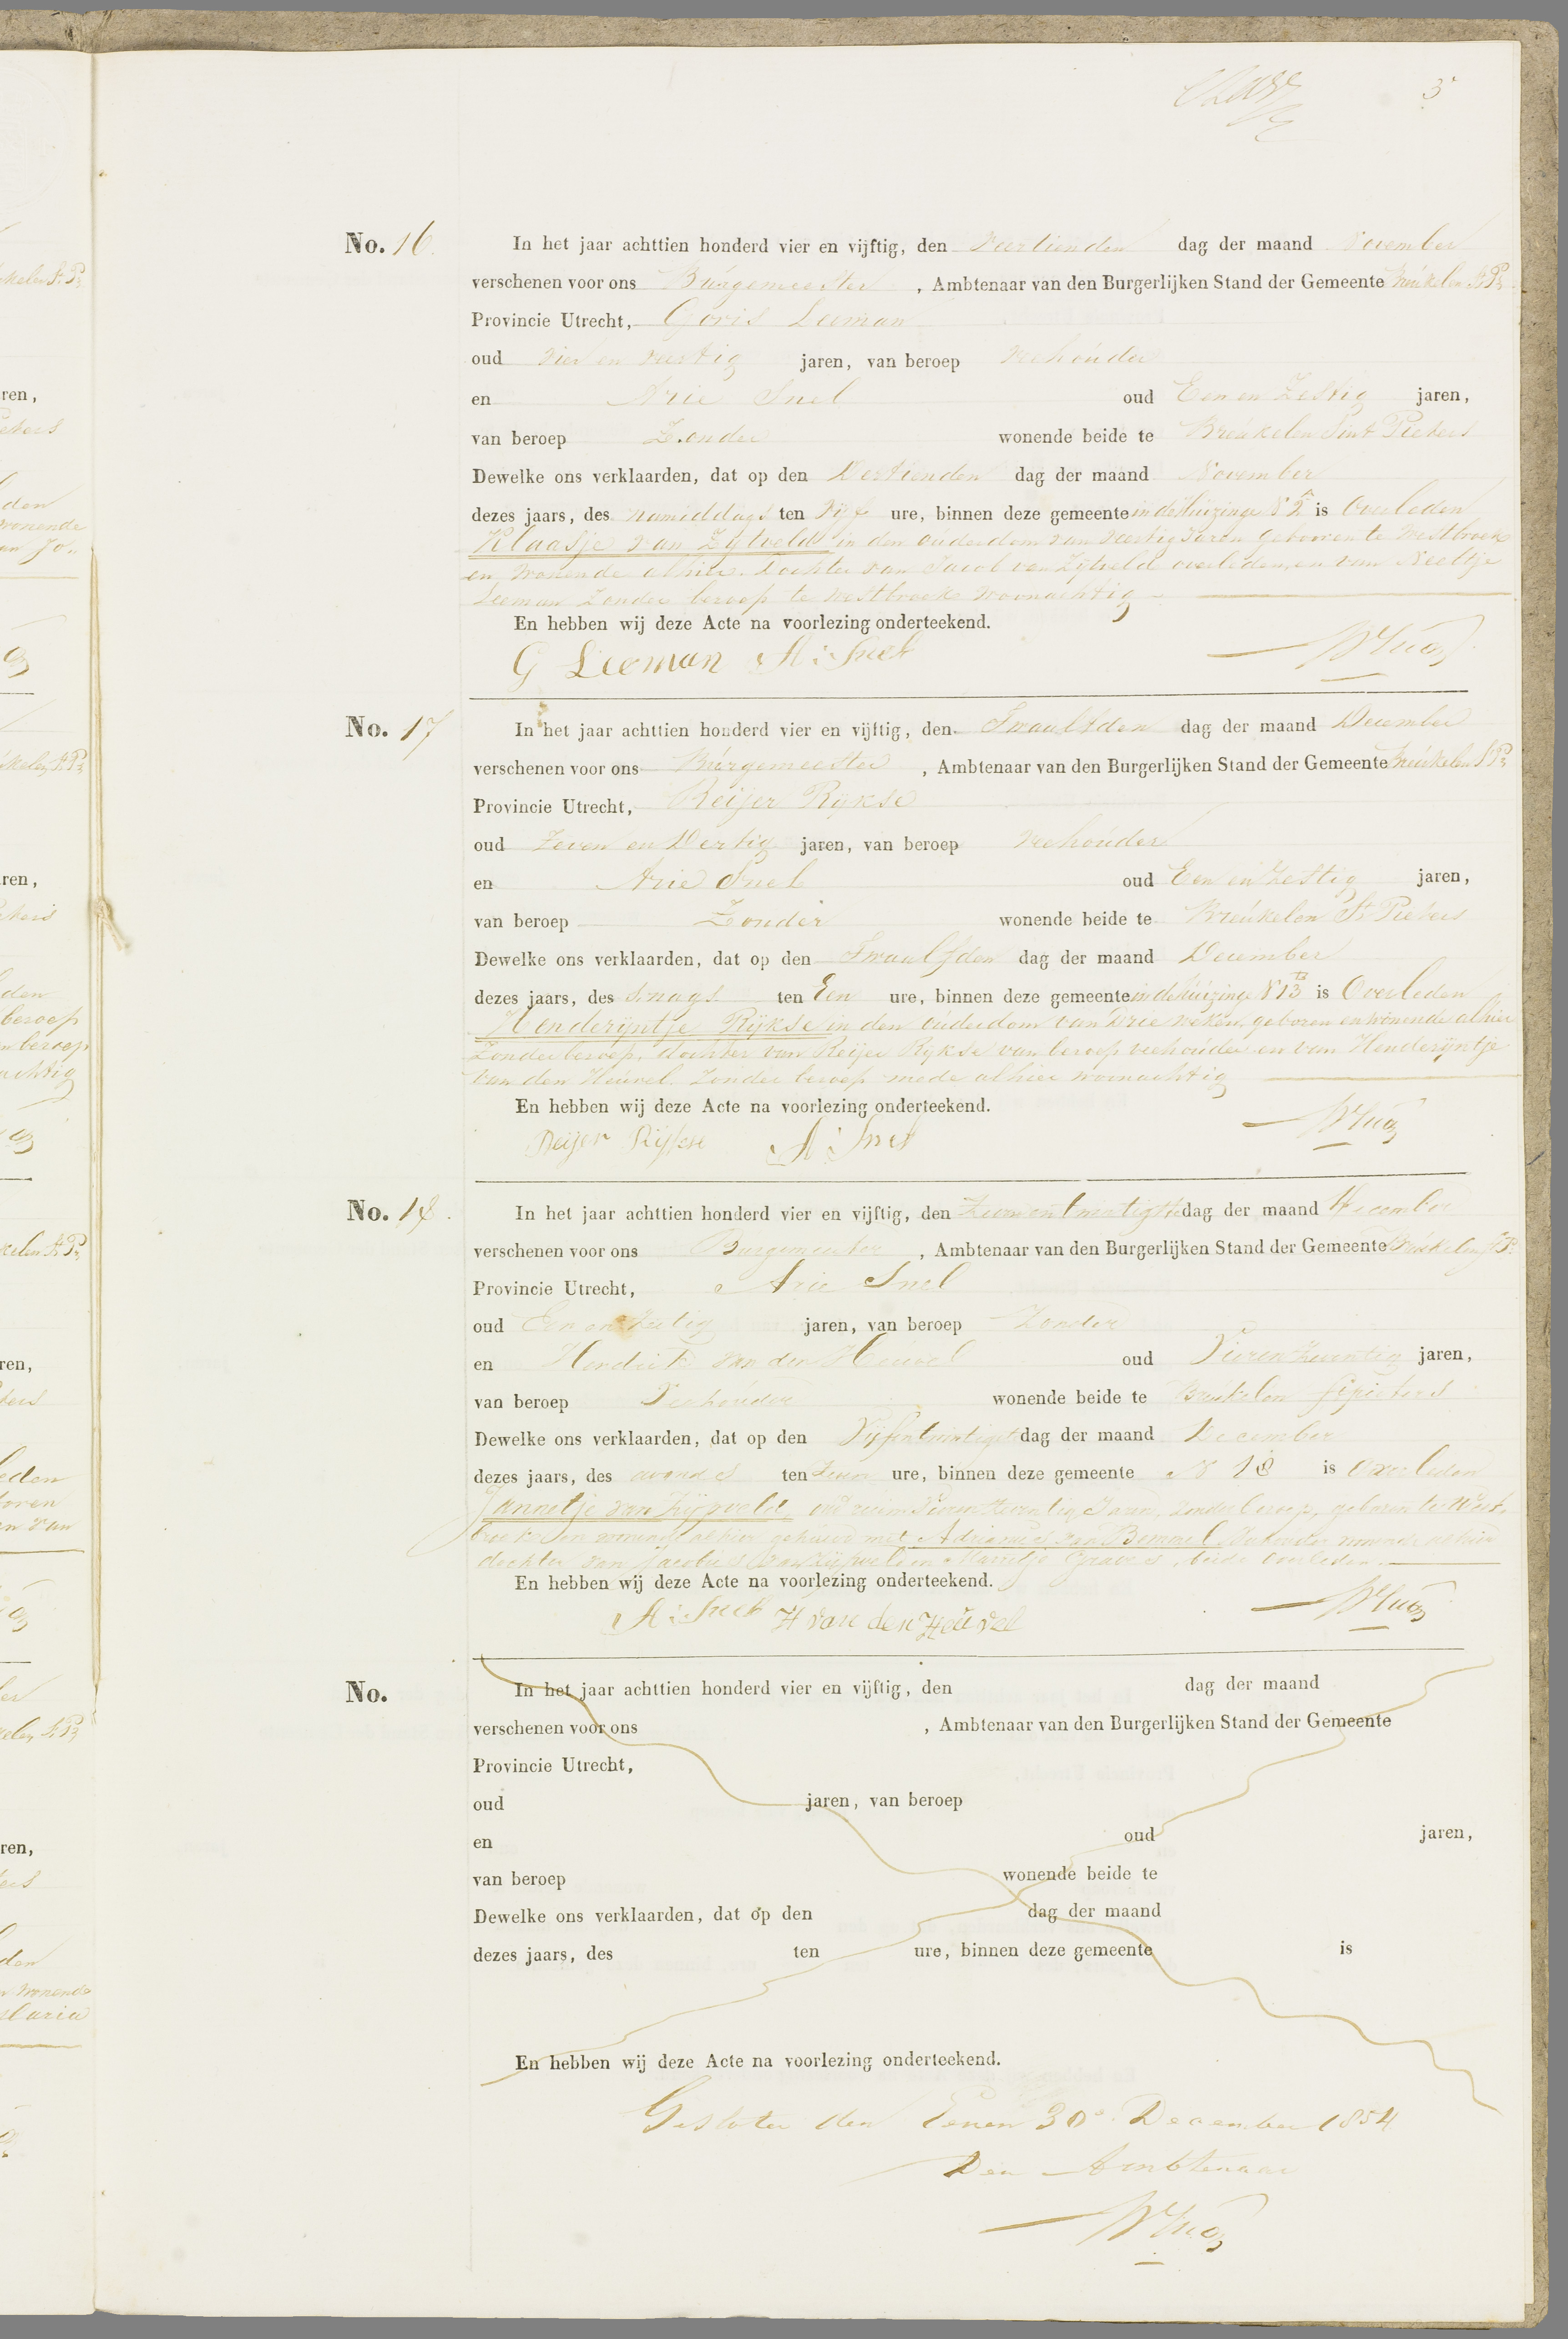 3
No. 16. In het jaar achttien honderd vier en vijftig, den veertienden dag der maand November
verschenen voor ons Burgemeester, Ambtenaar van den Burgerlijken Stand der Gemeente Breukelen St. P.
Provincie Utrecht, Goris Leeman
oud vier en veertig jaren, van beroep veehouder
en Arie Snel oud Een en Zestig jaren,
van beroep Zonder wonende beide te Breukelen Sint Pieters
Dewelke ons verklaarden, dat op den Dertienden dag der maand November
dezes jaars, des namiddags ten Vijf ure, binnen deze gemeente in de Huizinge N 2 is Overleden
Klaasje van Zijlveld in den ouderdom van veertig Jaren geboren te Westbroek
en wonende alhier. Dochter van Jacob van Zijlveld overleden, en van Neeltje
Leeman Zonder beroep te Westbroeke woonachtig
En hebben wij deze Acte na voorlezing onderteekend.
G Leeman A: Snel
No. 17 In het jaar achttien honderd vier en vijftig, den Twaalfden dag der maand December
verschenen voor ons Burgemeester, Ambtenaar van den Burgerlijken Stand der Gemeente Breukelen St P.
Provincie Utrecht, Reijer Rijkse
oud Zeven en Dertig jaren, van beroep veehouder
en Arie Snel oud Een en Zestig jaren,
van beroep Zonder wonende beide te Breukelen St Pieters
Dewelke ons verklaarden, dat op den Twaalfden dag der maand December
dezes jaars, des snags ten Een ure, binnen deze gemeente in de huizinge N 13 is Overleden
Henderijntje Rijkse in den ouderdom van Drie weken, geboren en wonende alhier
Zonder beroep, dochter van Reijer Rijkse van beroep veehouder en van Henderijntje
van den Heuvel. Zonder beroep mede alhier woonachtig
En hebben wij deze Acte na voorlezing onderteekend.
Reijer Rijkse A: Snel
No. 18. In het jaar achttien honderd vier en vijftig, den Zevenentwintigste dag der maand December
verschenen voor ons Burgemeester, Ambtenaar van den Burgerlijken Stand der Gemeente Breukelen St P.
Provincie Utrecht, Arie Snel
oud Een en Zestig jaren, van beroep Zonder
en Hendrik van den Heuvel oud jaren,
van beroep Veehouder wonende beide te Breukelen St pieters
Dewelke ons verklaarden, dat op den Vijfentwintigst dag der maand December
dezes jaars, des avonds ten Zeven ure, binnen deze gemeente N 18 is Overleden
Jannetje van Zijpveld, oud ruim Jaren, zonder beroep, geboren te West-
broek en wonende alhier gehuwd met Adrianus van Bemmel wonende alhier
dochter van Jacobus van Zijpveld en Marritje Graves, beide overleden.
En hebben wij deze Acte na voorlezing onderteekend.
A: Snel H van den Heuvel
No. In het jaar achttien honderd vier en vijftig, den dag der maand
verschenen voor ons , Ambtenaar van den Burgerlijken Stand der Gemeente
Provincie Utrecht,
oud jaren, van beroep
en oud jaren,
van beroep wonende beide te
Dewelke ons verklaarden, dat op den dag der maand
dezes jaars, des ten ure, binnen deze gemeente is
En hebben wij deze Acte na voorlezing onderteekend.
Gesloten den 30e December 1854
Den Ambtenaar